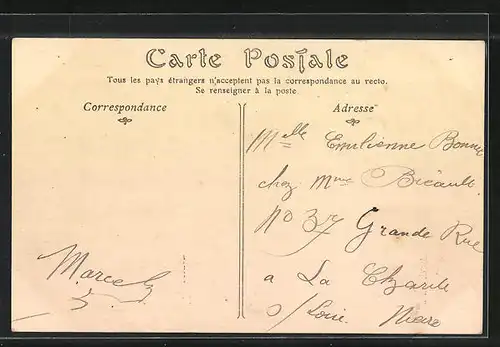 Carte Postale
Tous les pays étrangers n'acceptent pas la correspondance au recto.
Se renseigner à la poste
Correspondance
Adresse
Melle Emilienne Bonne
chez Mme Bréault
No 37 Grande Rue
a La Charité
s/ Loire. Nièvre
Marcel